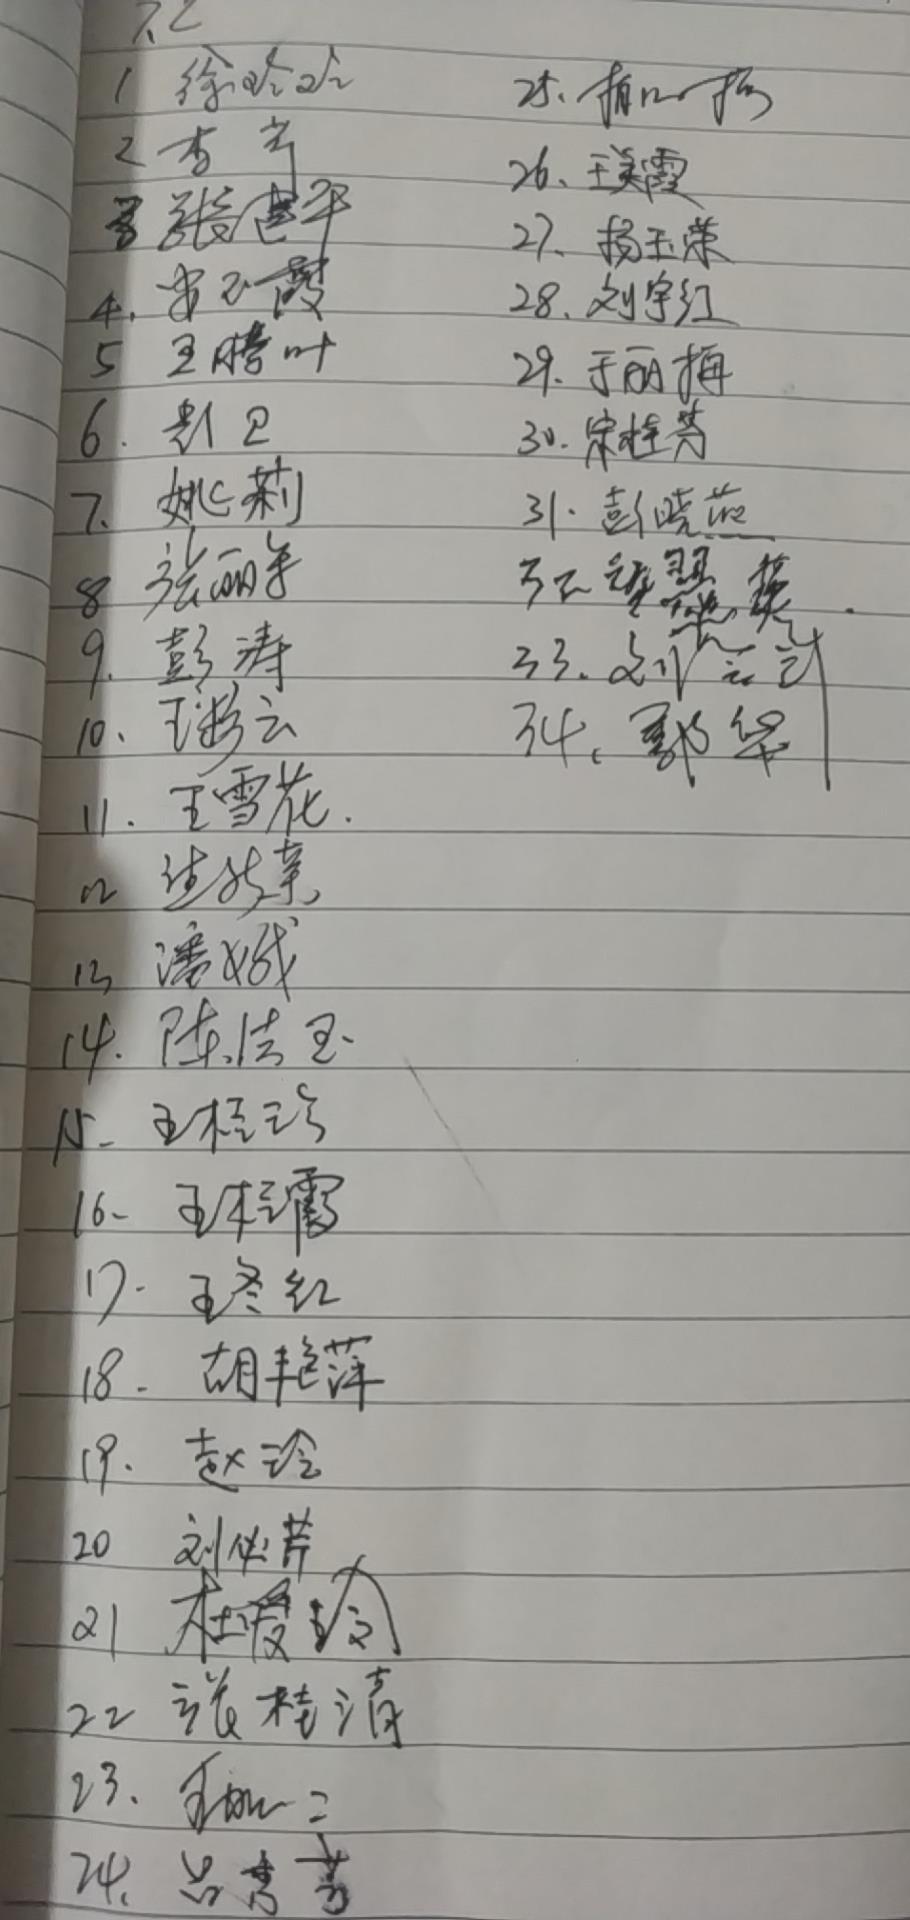 1 徐玲玲
2 李
3 张建华
4. 宋玉霞
5 王腾叶
6. 彭卫
7. 姚莉
8 张丽华
9. 彭涛
10、王彩云
11. 王雪花.
12
13 潘娥
14. 陈洁玉
15. 王桂珍
16. 王桂霞
17. 王冬红
18. 胡艳萍
19. 赵玲
20 刘必芹
21 杜爱玲
22 张桂清
23. 王
24. 吕秀芳
25.
26、王美霞
27. 杨玉荣
28. 刘宇红
29. 于丽梅
30. 宋桂芳
31. 彭晓燕
32
33. 刘云
34、郭华